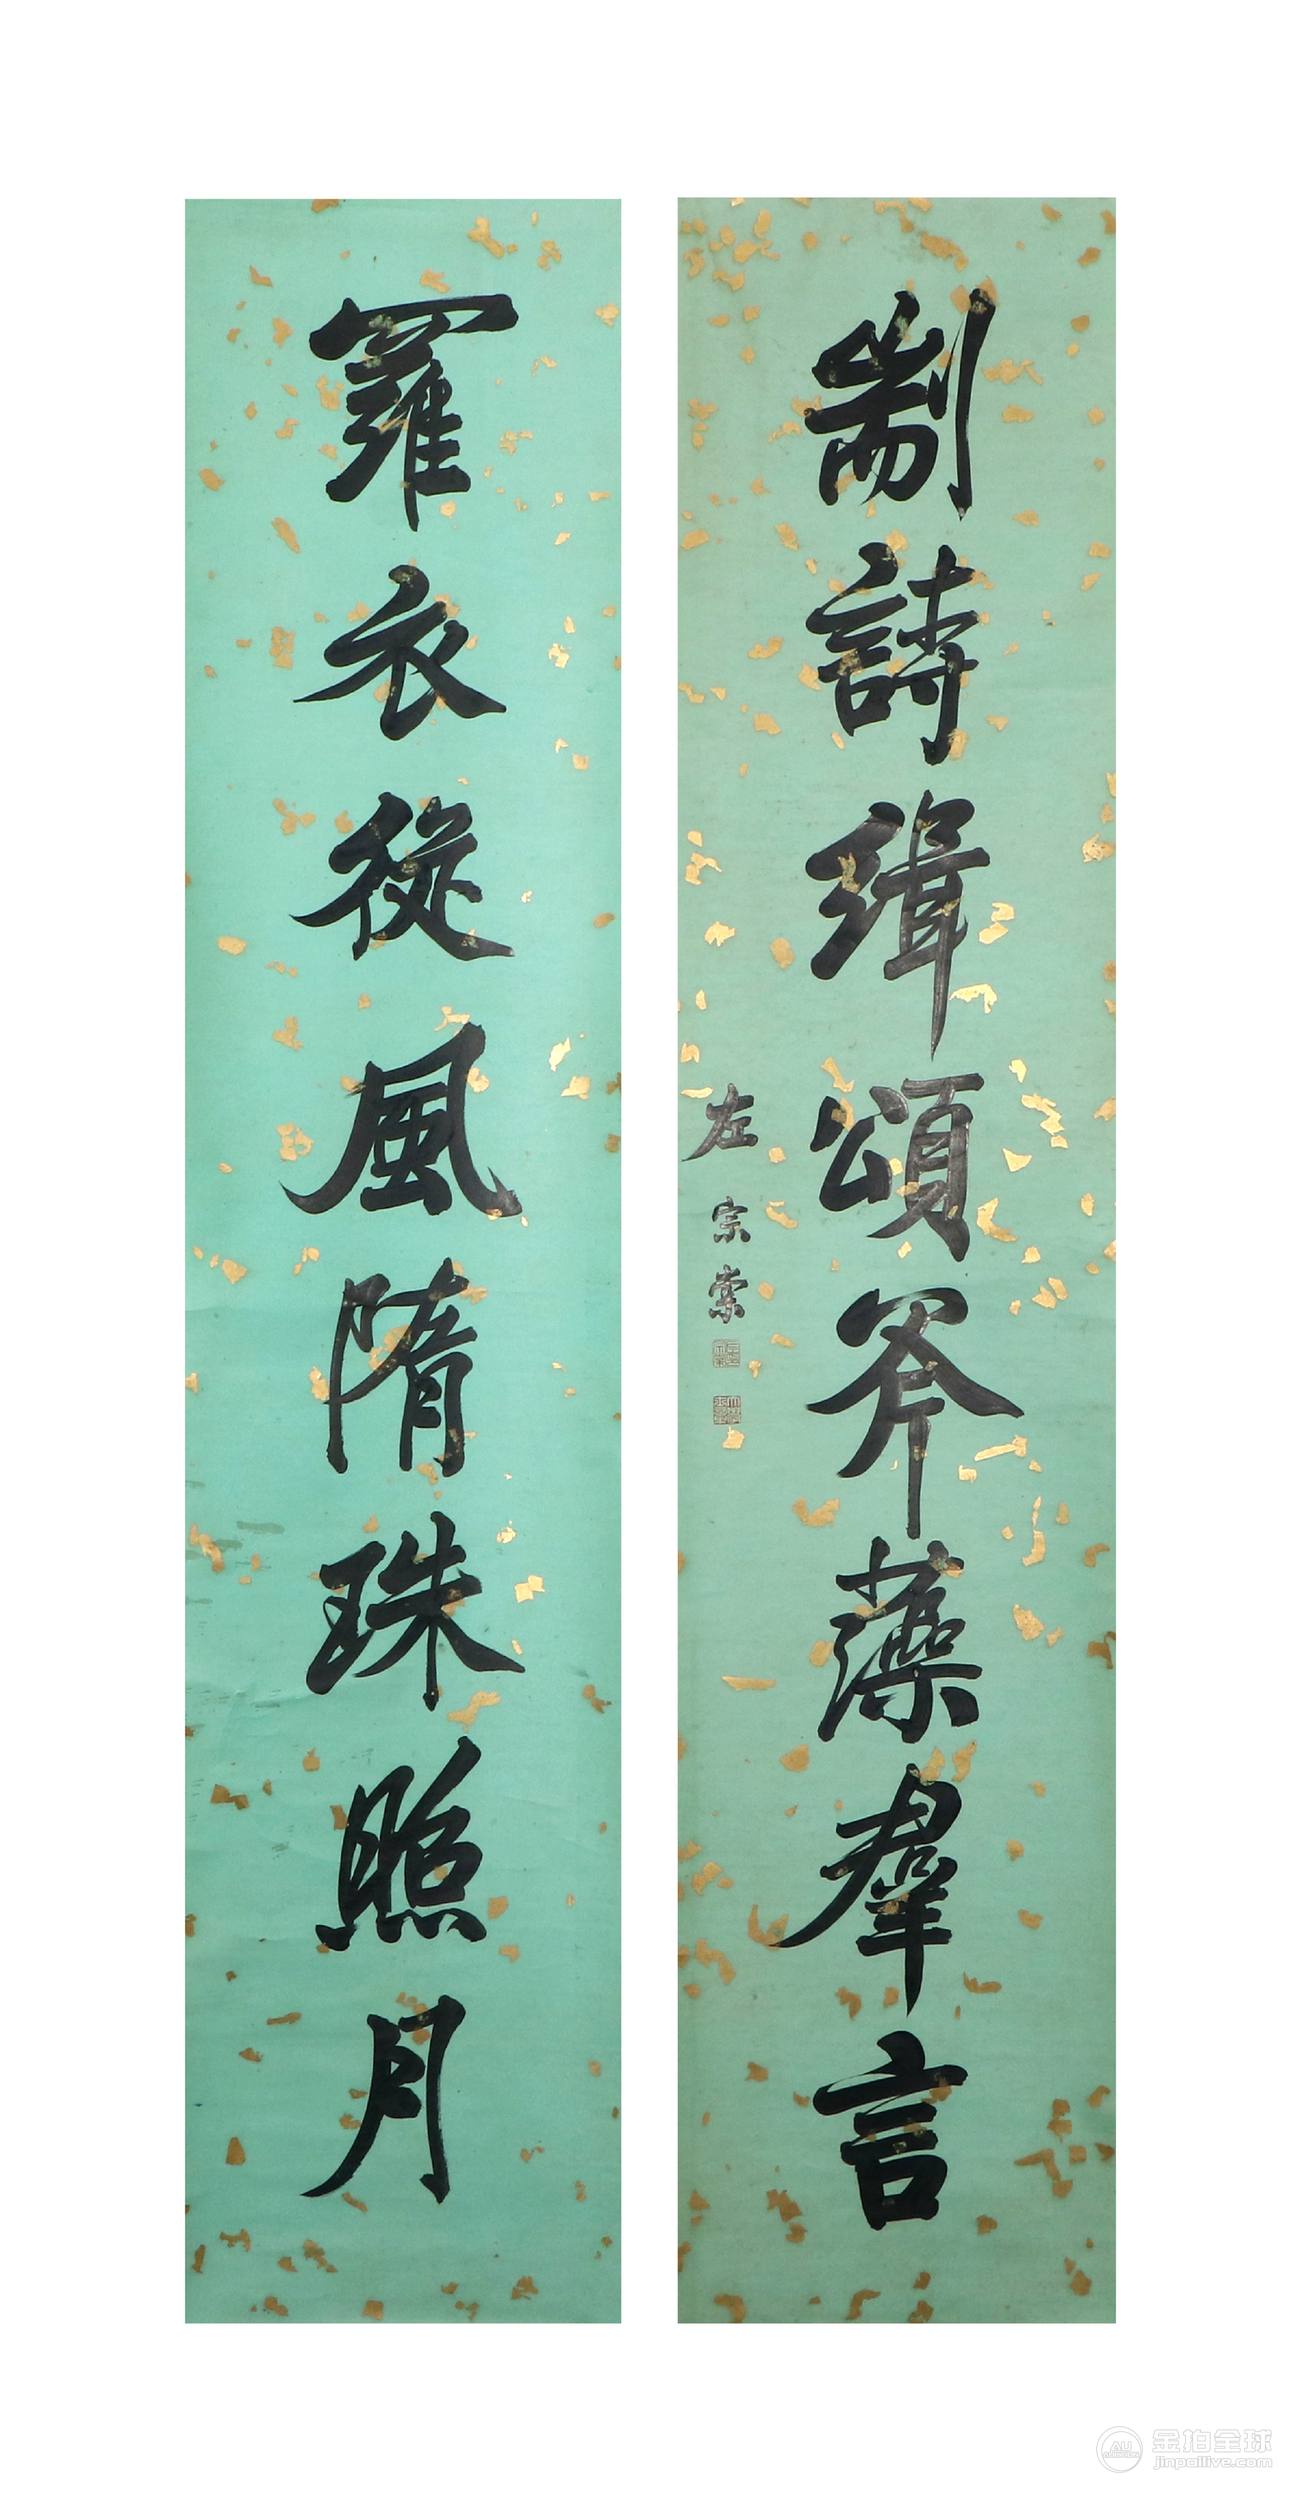 制詩緝頌斧藻羣言
左宗棠
羅衣從風隋珠照月
金拍全球
jinpailive.com